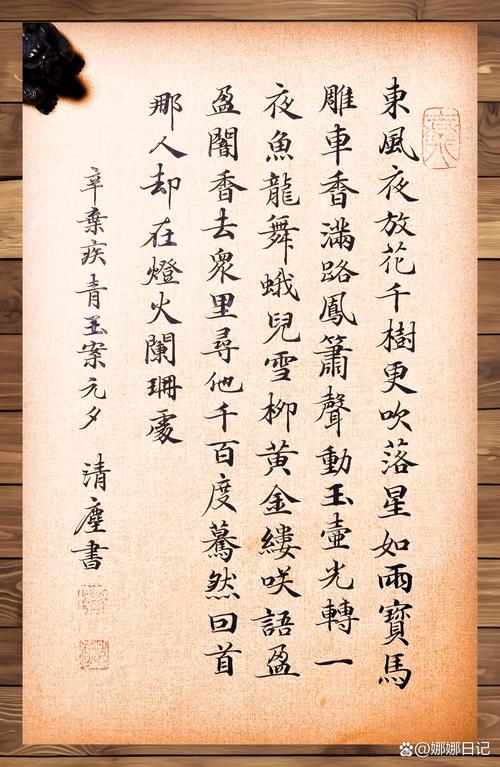 東風夜放花千樹更吹落星如雨寶馬
雕車香滿路鳳簫聲動玉壺光轉一
夜魚龍舞蛾兒雪柳黃金縷咲語盈
盈闇香去衆里尋他千百度驀然回首
那人却在燈火闌珊處
辛棄疾青玉案元夕 清塵書
@娜娜日记